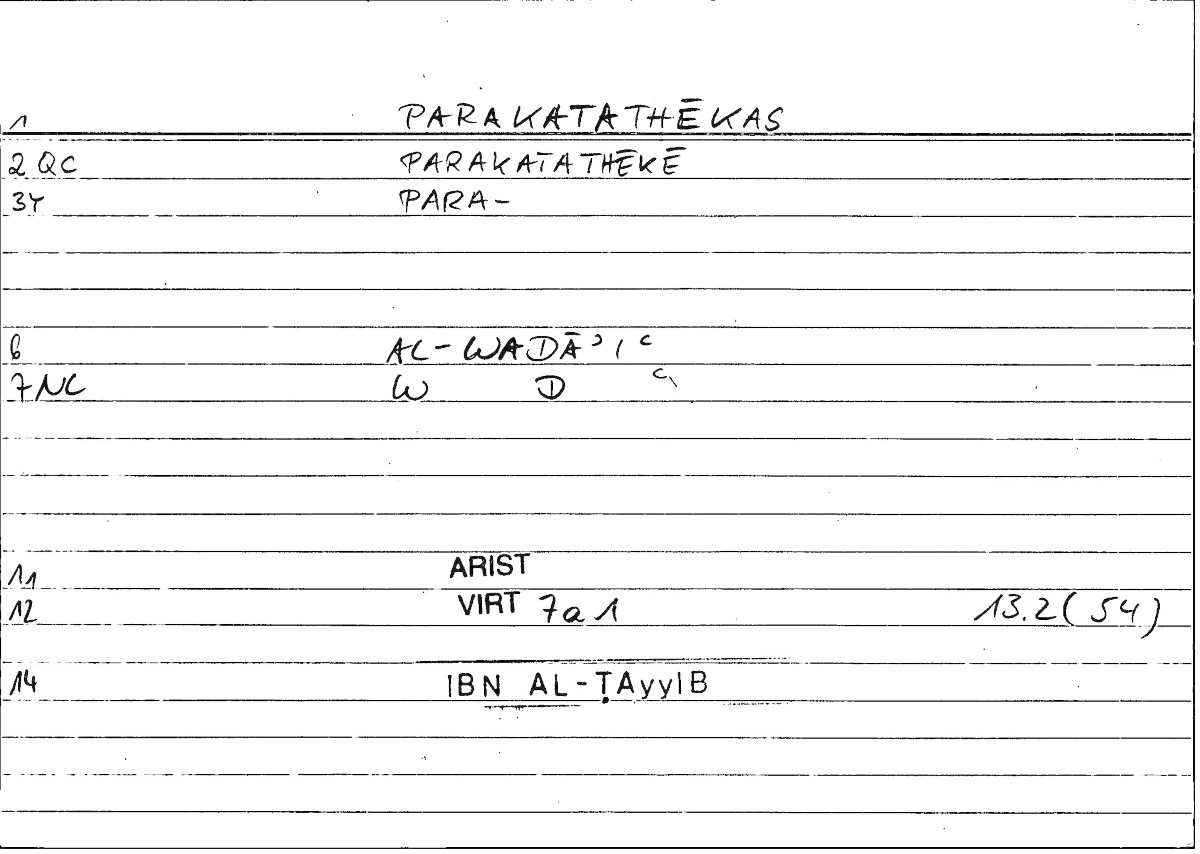 1 PARAKATATHĒKAS
2 QC PARAKATATHĒKĒ
3Y PARA-
6 AL-WADĀʾIʿ
7 NC W D ʿ
11 ARIST
12 VIRT 7a1 13.2(54)
14 IBN AL-ṬAyyIB